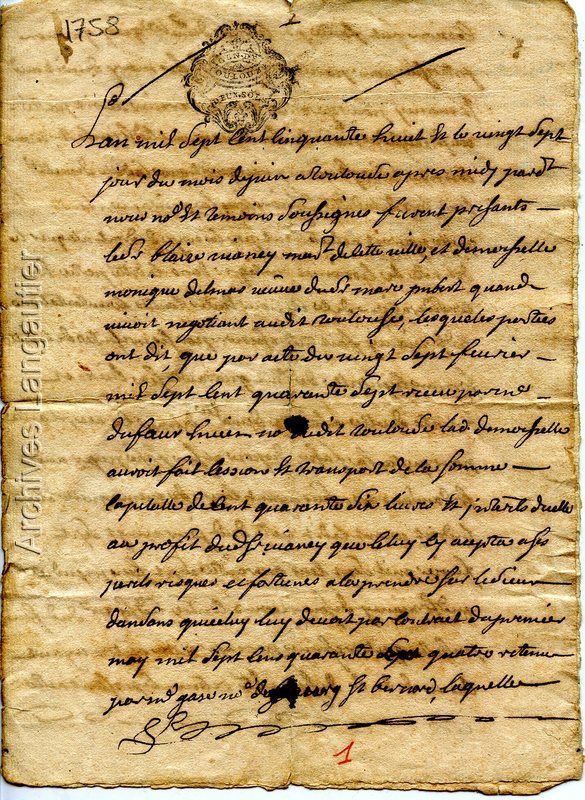 1
1758
GEN DE
TOULOUSE
DEUX SOLS
Lan mil sept cent cinquante huit et le vingt sept
jour du mois de juin a toulouse apres midy pardt
nous nore et temoins soussignes furent presants
le sr blaize vianey mart de cette ville, et demoiselle
monique delmas veuve du sr marc pubert quand
vivoit negotiant audit toulouse, lesqueles parties
ont dit, que par acte du vingt sept fevrier
mil sept cent quarante sept receu par me
dufaur huien nore dudit toulouse lad demoiselle
auroit fait cession et transport de la somme
capitalle de cent quarante dix livres et interets duelle
au profit dud sr vianey que celuy cy acepta a ses
perils risques et fortunes a la prendre sur le sieur
dansans qui celuy luy devoit par contrait du premier
may mil sept cens quarante quatre retenu
par me gase nore st bernard, laquelle
1
Archives Langautier